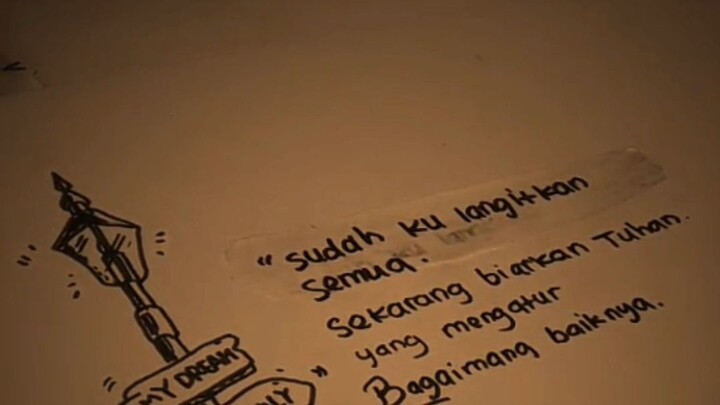 "sudah ku langitkan
semua.
sekarang biarkan Tuhan.
yang mengatur
Bagaimana baiknya.
MY DREAM